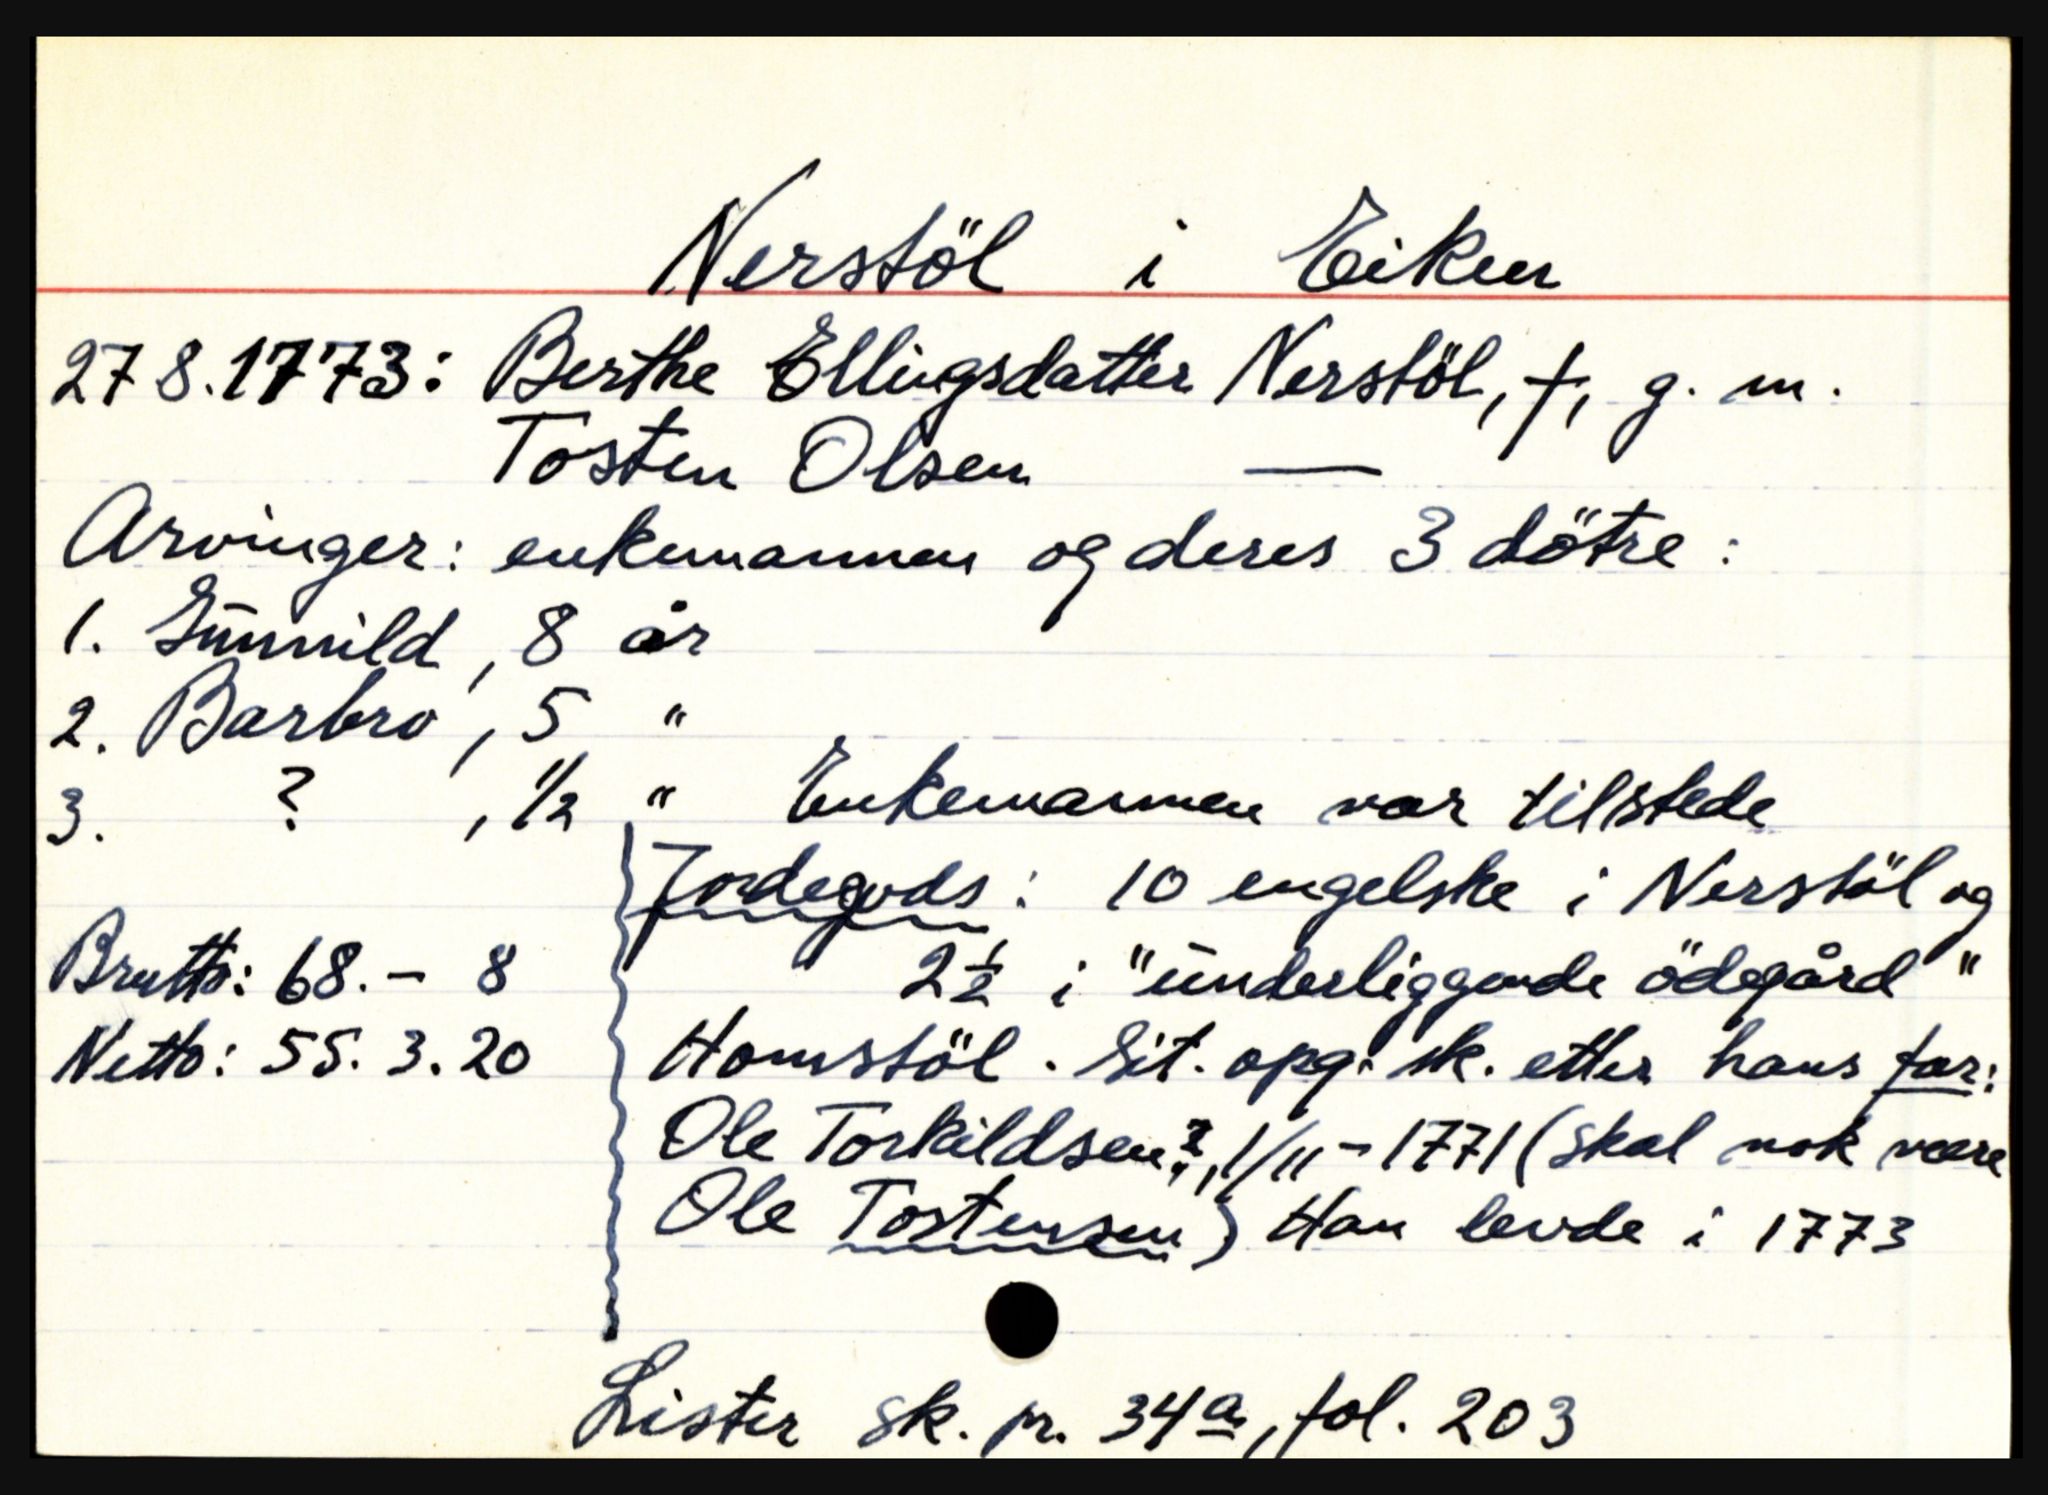 Nerstöl i Eiken
27 8.1773: Berthe Ellingsdatter Nerstöl, †, g. m.
Tosten Olsen —
Arvinger: enkemannen og deres 3 dötre:
1. Gunnild, 8 år
2. Barbro, 5 "
3. ? , 1/2 " Enkemannen var tilstede
Jordegods: 10 engelske i Nerstöl og
2 1/2 i "underliggende ödegård"
Homstöl. Sit. opg. sk. etter hans far:
Ole Torkildsen?, 1/11-1771 (skal nok være
Ole Tostensen) Han levde i 1773
Brutto: 68.- 8
Netto: 55. 3. 20
Lister sk. pr. 34a, fol. 203